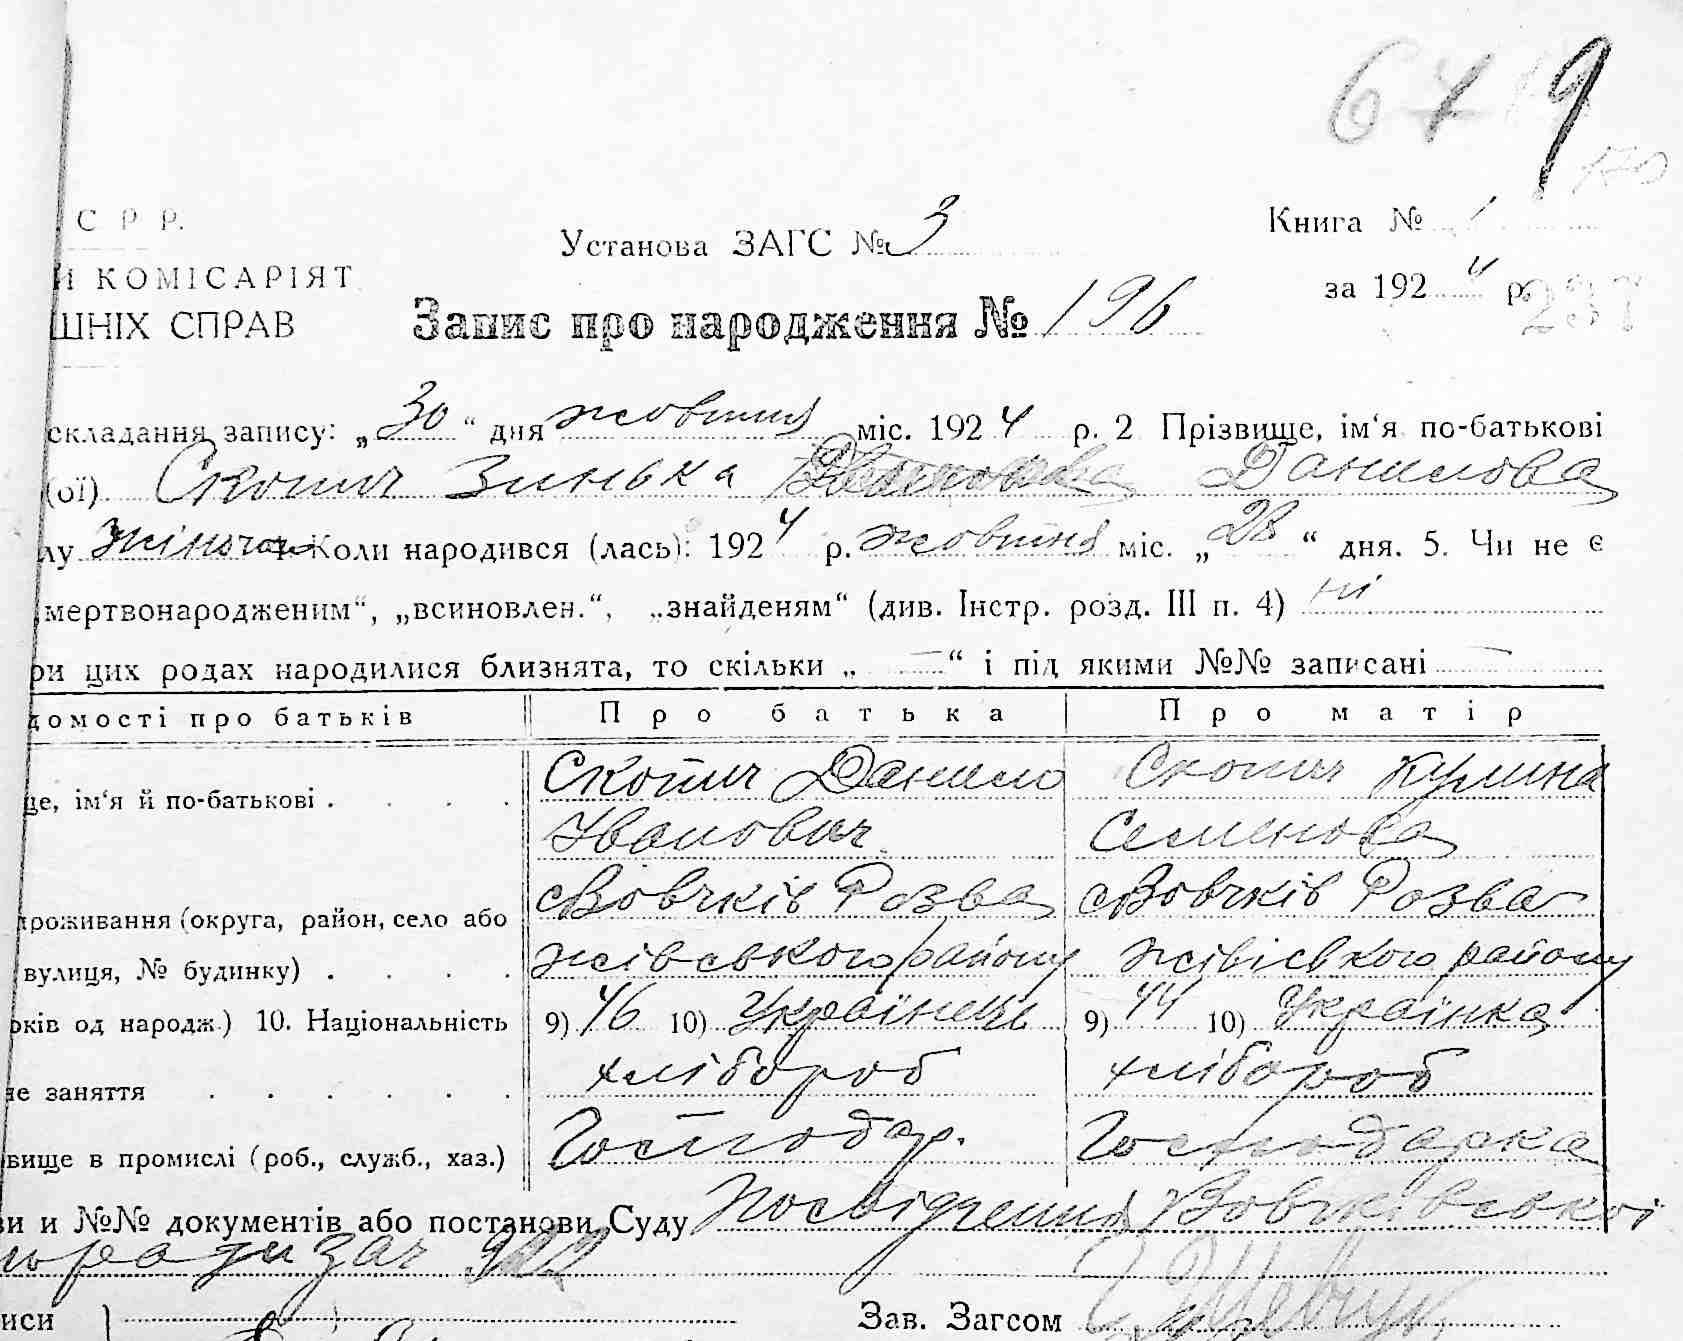 6 4 9
170
С Р Р.
Установа ЗАГС № 3
Книга № 1
Й КОМІСАРІЯТ
за 1924 р.
237
ШНІХ СПРАВ
Запис про народження № 196
складання запису: „30“ дня жовтня міс. 1924 р. 2 Прізвище, ім‘я по-батькові
(ої) Скопич Зинька Данилова
лу жіноча 4 Коли народився (лась): 1924 р. жовтня міс. „28“ дня. 5. Чи не є
мертвонародженим“, „всиновлен.“, „знайденям“ (див. Інстр. розд. III п. 4) ні
ри цих родах народилися близнята, то скільки „ — “ і під якими №№ записані —
домості про батьків Про батька Про матір
це, ім‘я й по-батькові . . . . Скопич Данило Скопич Кулина
Іванович Семенова
с Вовчків Розва с Вовчків Розва
роживання (округа, район, село або
жівського району жівіського району
вулиця, № будинку) . . . .
оків од народж.) 10. Національність 9) 46 10) Українець 9) 44 10) Українка
не заняття . . . . . . хлібороб хлібороб
вище в промислі (роб., служб., хаз.) Господар. Господарка
ви и №№ документів або постанови Суду Посвідчення Вовчківської
зач 922
иси
Зав. Загсом Шевчук